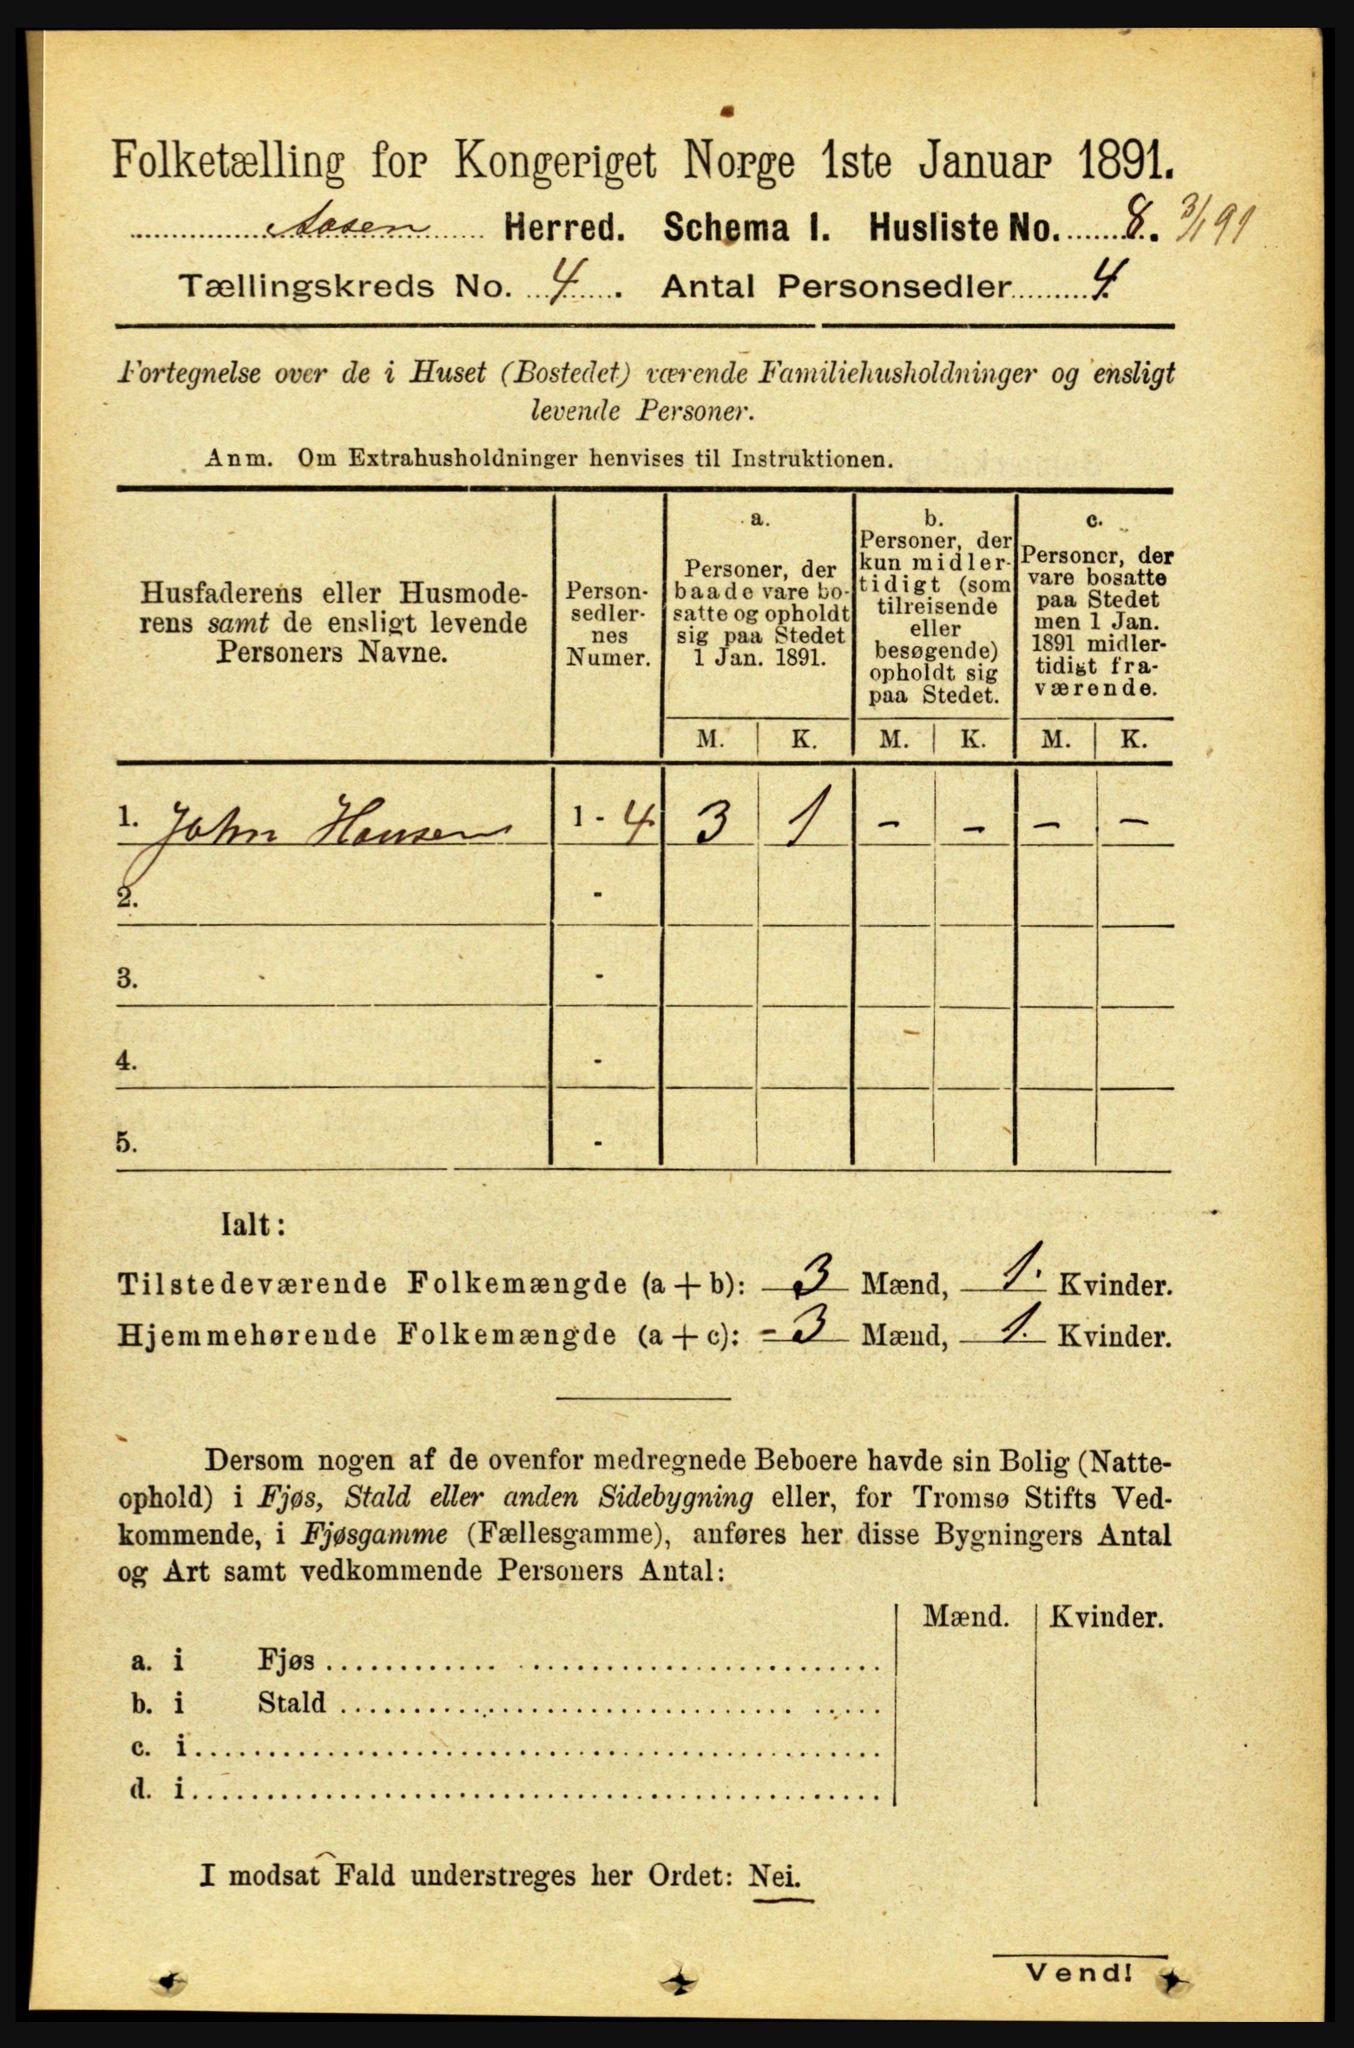 Folketælling for Kongeriget Norge 1ste Januar 1891.
Aasen Herred. Schema I. Husliste No. 8. 3/1 91
Tællingskreds No. 4. Antal Personsedler 4.
Fortegnelse over de i Huset (Bostedet) værende Familiehusholdninger og ensligt
levende Personer.
Anm. Om Extrahusholdninger henvises til Instruktionen.
Husfaderens eller Husmode-
rens samt de ensligt levende
Personers Navne.
Person-
sedler-
nes
Numer.
a.
Personer, der
baade vare bo-
satte og opholdt
sig paa Stedet
1 Jan. 1891.
b.
Personer, der
kun midler-
tidigt (som
tilreisende
eller
besøgende)
opholdt sig
paa Stedet.
c.
Personer, der
vare bosatte
paa Stedet
men 1 Jan.
1891 midler-
tidigt fra-
værende.
M. K. M. K. M. K.
1. John Hansen 1 - 4 3 1 - - - -
2. -
3. -
4. -
5. -
Ialt:
Tilstedeværende Folkemængde (a + b): 3 Mænd, 1. Kvinder.
Hjemmehørende Folkemængde (a + c): - 3 Mænd, 1. Kvinder.
Dersom nogen af de ovenfor medregnede Beboere havde sin Bolig (Natte-
ophold) i Fjøs, Stald eller anden Sidebygning eller, for Tromsø Stifts Ved-
kommende, i Fjøsgamme (Fællesgamme), anføres her disse Bygningers Antal
og Art samt vedkommende Personers Antal:
Mænd. Kvinder.
a. i Fjøs
b. i Stald
c. i
d. i
I modsat Fald understreges her Ordet: Nei.
Vend!